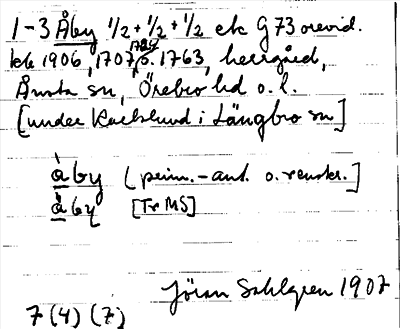 1-3 Åby 1/2 + 1/2 + 1/2 ek G 73 orevid.
kbl 1906, 1707, 1724, o. 1763, herrgård,
Ånsta sn, Örebro hd o. l.
[under Karlslund i Längbro sn]
àby [prim.-ant. o. renskr.]
åby [Tr MS]
Jöran Sahlgren 1907
7 (4) (7)